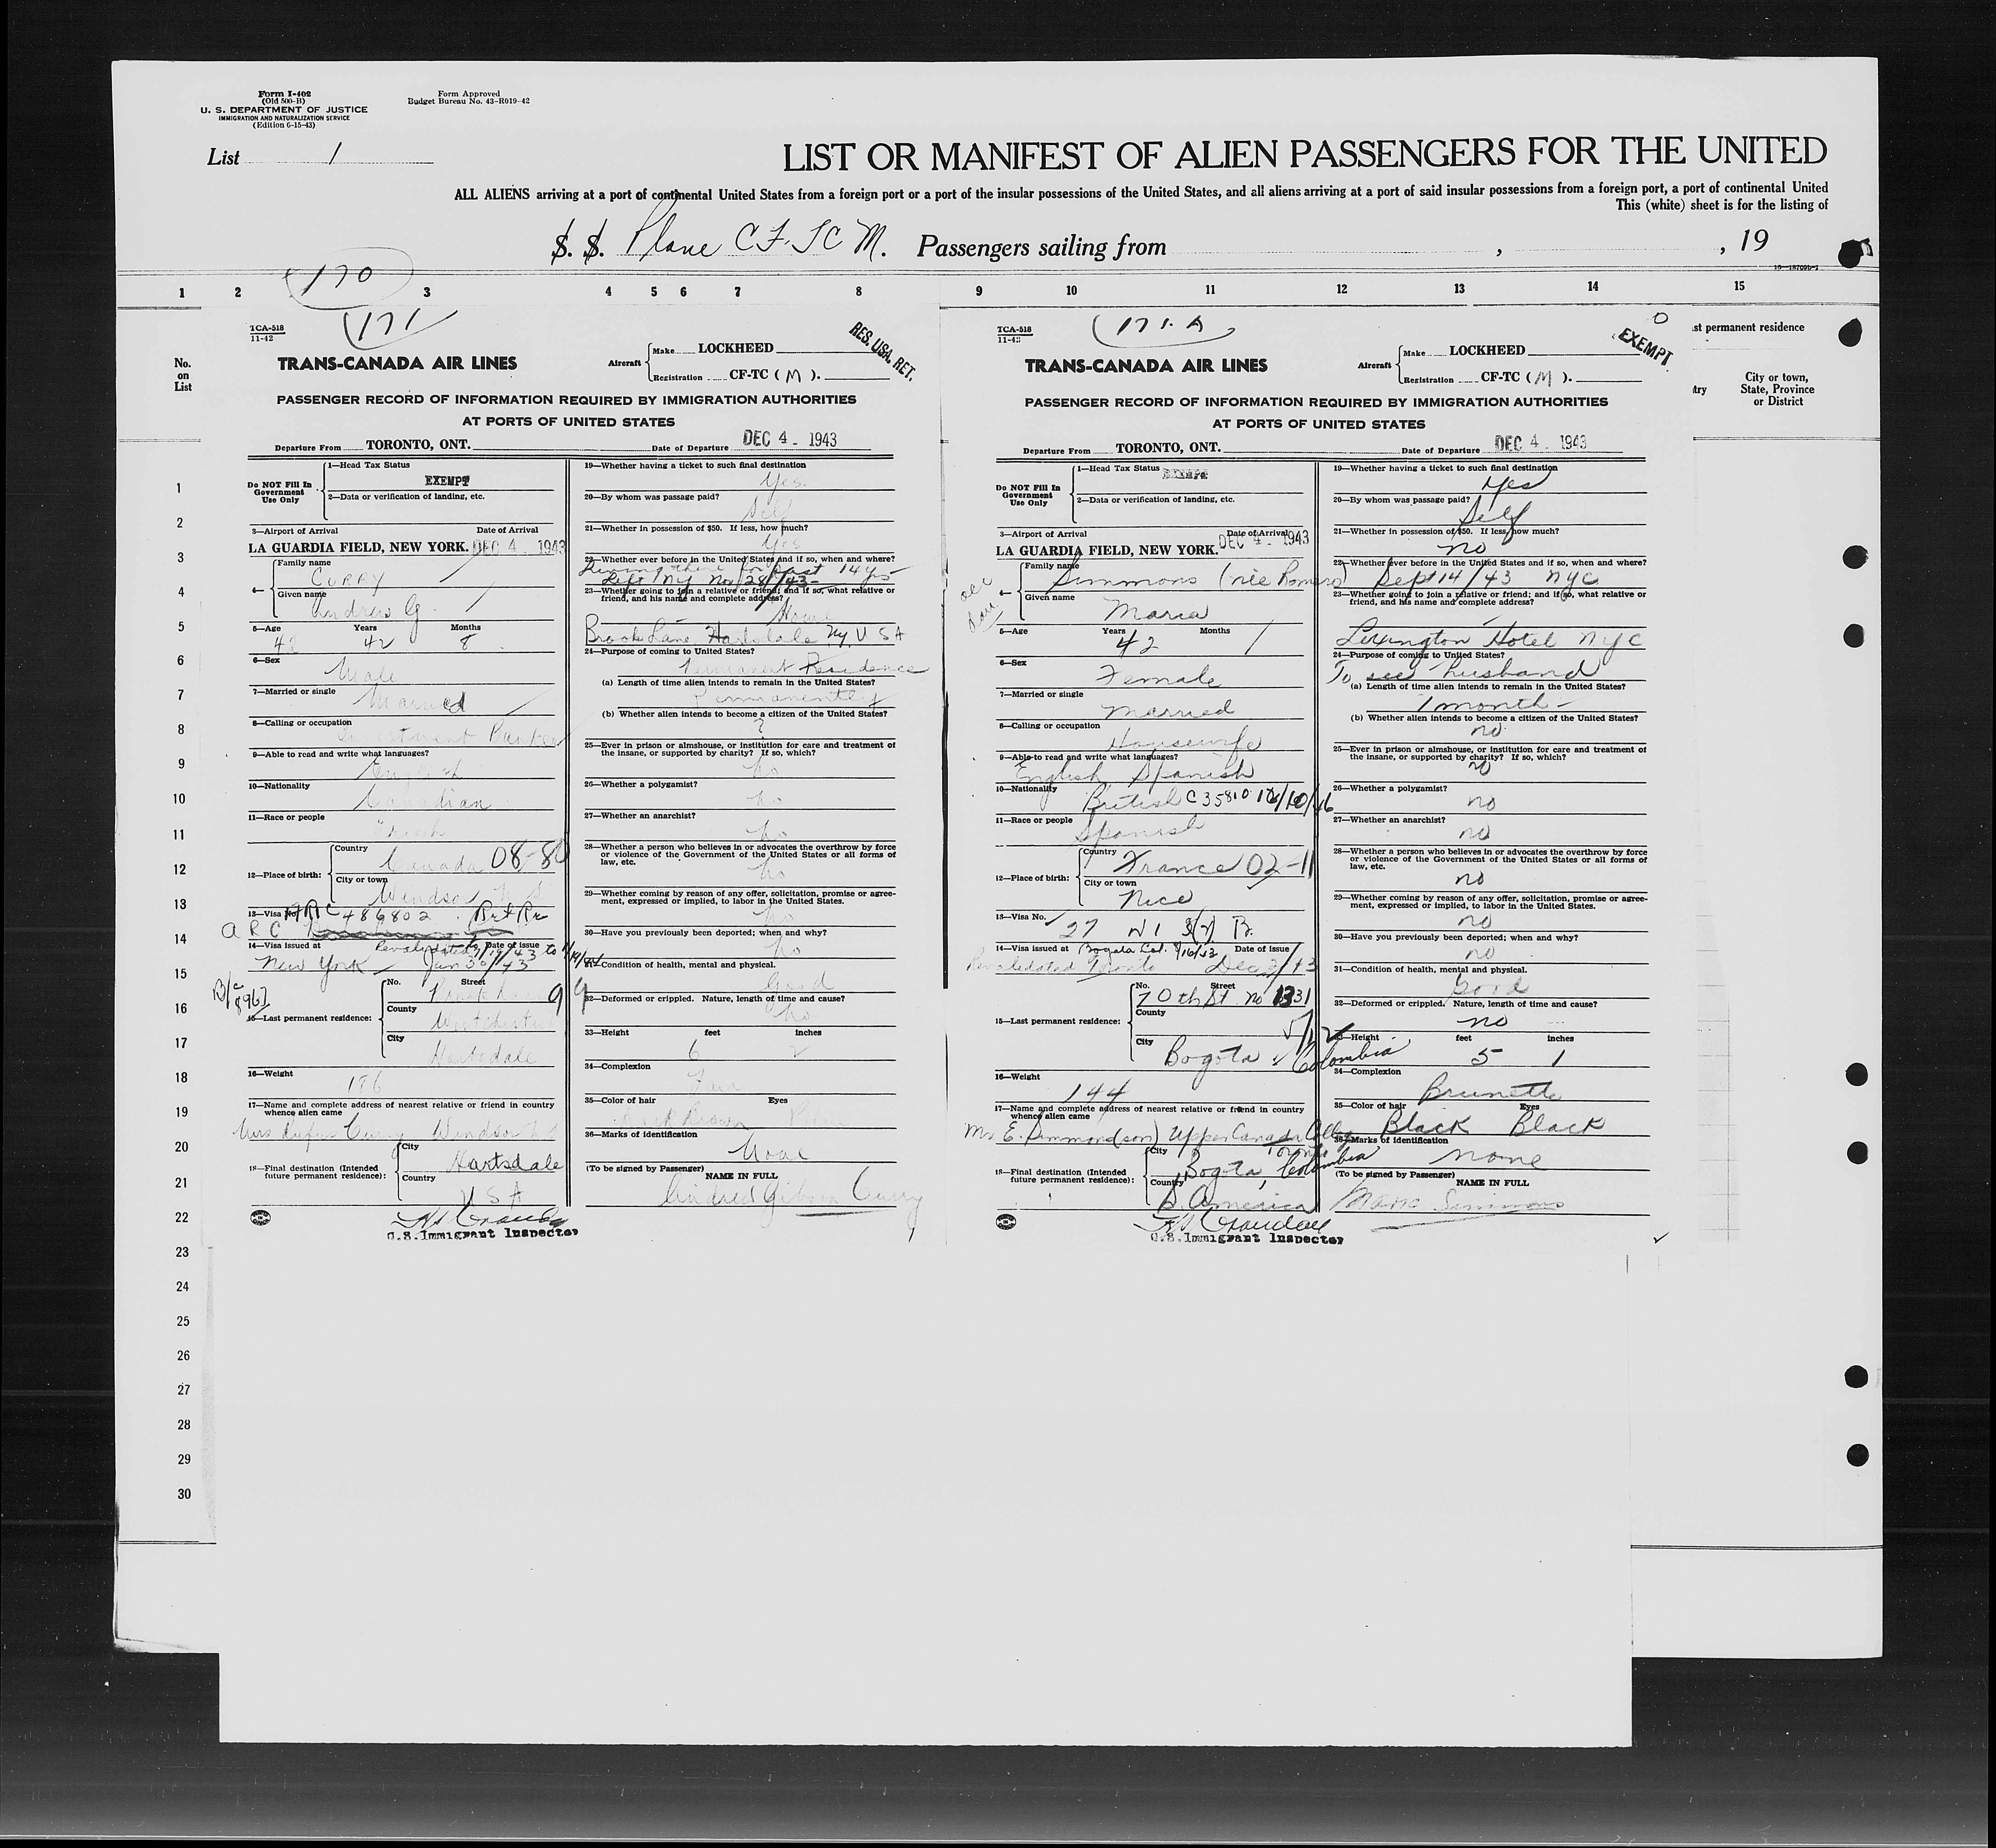 Form I-402
(Old 500-B)
U. S. DEPARTMENT OF JUSTICE
IMMIGRATION AND NATURALIZATION SERVICE
(Edition 6-15-43)
Form Approved
Budget Bureau No. 43-R019-42
List 1
LIST OR MANIFEST OF ALIEN PASSENGERS FOR THE UNITED
ALL ALIENS arriving at a port of continental United States from a foreign port or a port of the insular possessions of the United States, and all aliens arriving at a port of said insular possessions from a foreign port, a port of continental United
This (white) sheet is for the listing of
S. S. Plane CF-TC M. Passengers sailing from , , 19
170
1 2 3 4 5 6 7 8 9 10 11 12 13 14 15
No.
on
List
1
2
3
4
5
6
7
8
9
10
11
12
13
14
15
16
17
18
19
20
21
22
23
24
25
26
27
28
29
30
171
TCA-518
11-42
RES. USA. RET.
TRANS-CANADA AIR LINES
Aircraft
Make LOCKHEED
Registration CF-TC ( M ).
PASSENGER RECORD OF INFORMATION REQUIRED BY IMMIGRATION AUTHORITIES
AT PORTS OF UNITED STATES
Departure From TORONTO, ONT. Date of Departure DEC 4 - 1943
Do NOT Fill In
Government
Use Only
1—Head Tax Status
EXEMPT
2—Data or verification of landing, etc.
3—Airport of Arrival Date of Arrival
LA GUARDIA FIELD, NEW YORK. DEC 4 - 1943
4—
Family name
Curry
Given name
Andrew G
5—Age Years Months
42 42 8
6—Sex
Male
7—Married or single
Married
8—Calling or occupation
Investment Banker
9—Able to read and write what languages?
English
10—Nationality
Canadian
11—Race or people
12—Place of birth:
Country
Canada 08-80
City or town
Windsor N S
13—Visa No. 486802
A R C
14—Visa issued at Date of issue
New York Jun 30/43
15—Last permanent residence:
No. Street
County
Westchester
City
Hartsdale
16—Weight
176
17—Name and complete address of nearest relative or friend in country
whence alien came
Mrs Rufus Curry Windsor N S
18—Final destination (Intended
future permanent residence):
City
Hartsdale
Country
U S A
U.S. Immigrant Inspector
19—Whether having a ticket to such final destination
Yes.
20—By whom was passage paid?
Self
21—Whether in possession of $50. If less, how much?
Yes
22—Whether ever before in the United States and if so, when and where?
Living there for past 14 yrs
Left NY Nov 28/43
23—Whether going to join a relative or friend; and if so, what relative or
friend, and his name and complete address?
Home
Brook Lane Hartsdale NY. U S A
24—Purpose of coming to United States?
Permanent Residence
(a) Length of time alien intends to remain in the United States?
Permanently
(b) Whether alien intends to become a citizen of the United States?
?
25—Ever in prison or almshouse, or institution for care and treatment of
the insane, or supported by charity? If so, which?
No
26—Whether a polygamist?
No
27—Whether an anarchist?
No
28—Whether a person who believes in or advocates the overthrow by force
or violence of the Government of the United States or all forms of
law, etc.
No
29—Whether coming by reason of any offer, solicitation, promise or agree-
ment, expressed or implied, to labor in the United States.
No
30—Have you previously been deported; when and why?
No
31—Condition of health, mental and physical.
Good
32—Deformed or crippled. Nature, length of time and cause?
No
33—Height feet inches
6 2
34—Complexion
Fair
35—Color of hair Eyes
Dark Brown
36—Marks of identification
None
(To be signed by Passenger)
NAME IN FULL
Andrew Gibson Curry
171-A
TCA-518
11-42
EXEMPT
TRANS-CANADA AIR LINES
Aircraft
Make LOCKHEED
Registration CF-TC ( M ).
PASSENGER RECORD OF INFORMATION REQUIRED BY IMMIGRATION AUTHORITIES
AT PORTS OF UNITED STATES
Departure From TORONTO, ONT. Date of Departure DEC 4 - 1943
Do NOT Fill In
Government
Use Only
1—Head Tax Status
EXEMPT
2—Data or verification of landing, etc.
3—Airport of Arrival Date of Arrival
LA GUARDIA FIELD, NEW YORK. DEC 4 - 1943
4—
Family name
Simmons (née Romero)
Given name
Maria
5—Age Years Months
42
6—Sex
Female
7—Married or single
Married
8—Calling or occupation
Housewife
9—Able to read and write what languages?
English Spanish
10—Nationality
British C35810 12/10/46
11—Race or people
Spanish
12—Place of birth:
Country
France 02-11
City or town
Nice
13—Visa No.
27
14—Visa issued at Bogota Col. 9/16/43 Date of issue
Revalidated Toronto Dec 3/43
15—Last permanent residence:
No. Street
70th St No 1331
County
City
Bogota Colombia
16—Weight
144
17—Name and complete address of nearest relative or friend in country
whence alien came
Mr E. Simmond (son) Upper Canada College
Toronto
18—Final destination (Intended
future permanent residence):
City
Bogta, Colombia
Country
S. America
U.S. Immigrant Inspector
19—Whether having a ticket to such final destination
Yes
20—By whom was passage paid?
Self
21—Whether in possession of $50. If less, how much?
no
22—Whether ever before in the United States and if so, when and where?
Sept 14/43 NYC
23—Whether going to join a relative or friend; and if so, what relative or
friend, and his name and complete address?
Lexington Hotel NYC
24—Purpose of coming to United States?
To see husband
(a) Length of time alien intends to remain in the United States?
1 month
(b) Whether alien intends to become a citizen of the United States?
no
25—Ever in prison or almshouse, or institution for care and treatment of
the insane, or supported by charity? If so, which?
no
26—Whether a polygamist?
no
27—Whether an anarchist?
no
28—Whether a person who believes in or advocates the overthrow by force
or violence of the Government of the United States or all forms of
law, etc.
no
29—Whether coming by reason of any offer, solicitation, promise or agree-
ment, expressed or implied, to labor in the United States.
no
30—Have you previously been deported; when and why?
no
31—Condition of health, mental and physical.
Good
32—Deformed or crippled. Nature, length of time and cause?
no
33—Height feet inches
5 1
34—Complexion
Brunette
35—Color of hair Eyes
Black Black
36—Marks of identification
none
(To be signed by Passenger)
NAME IN FULL
Maria Simmons
st permanent residence
try
City or town,
State, Province
or District